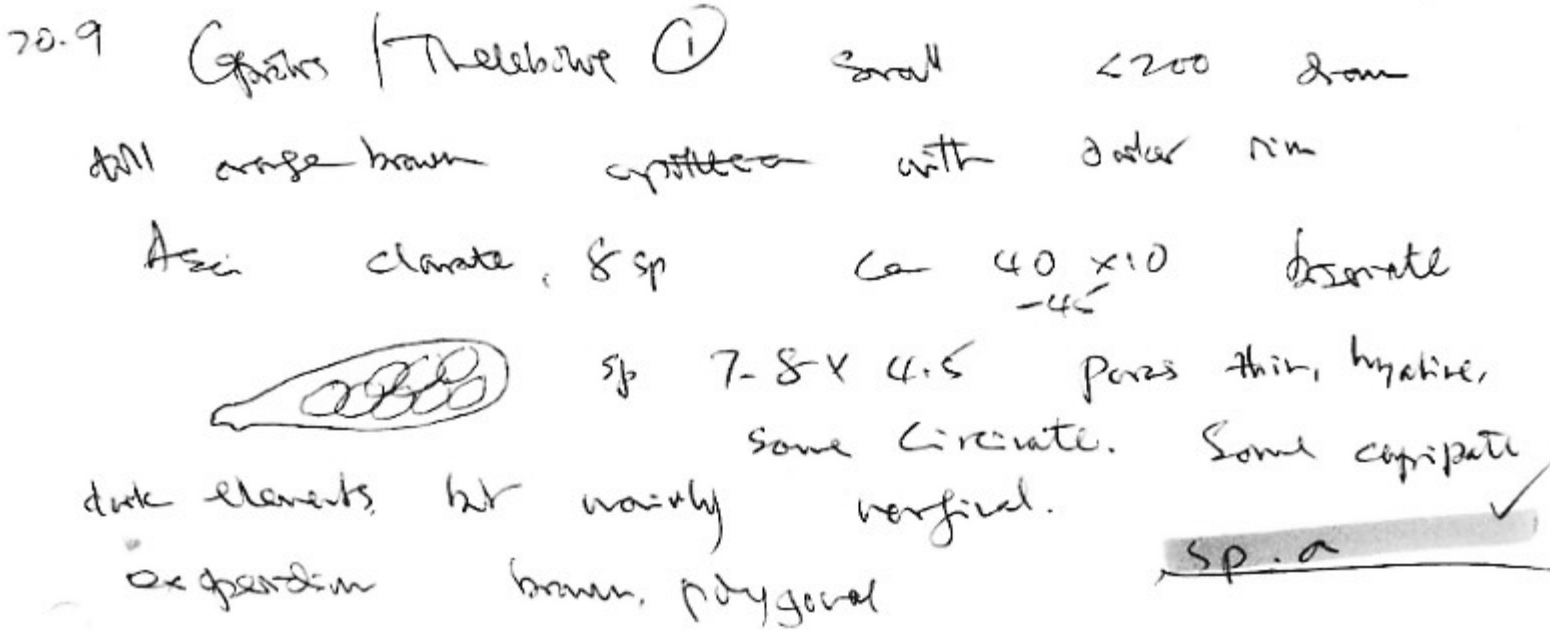 20.9 / Thelebolus ① Small <200 diam
dull orange brown with darker rim
Asci clavate, 8 sp ca 40 x 10 biseriate
-45
sp 7-8 x 4.5 paras thin, hyaline,
some circinate. Some
dark elements but mainly marginal.
sp. a
brown, polygonal